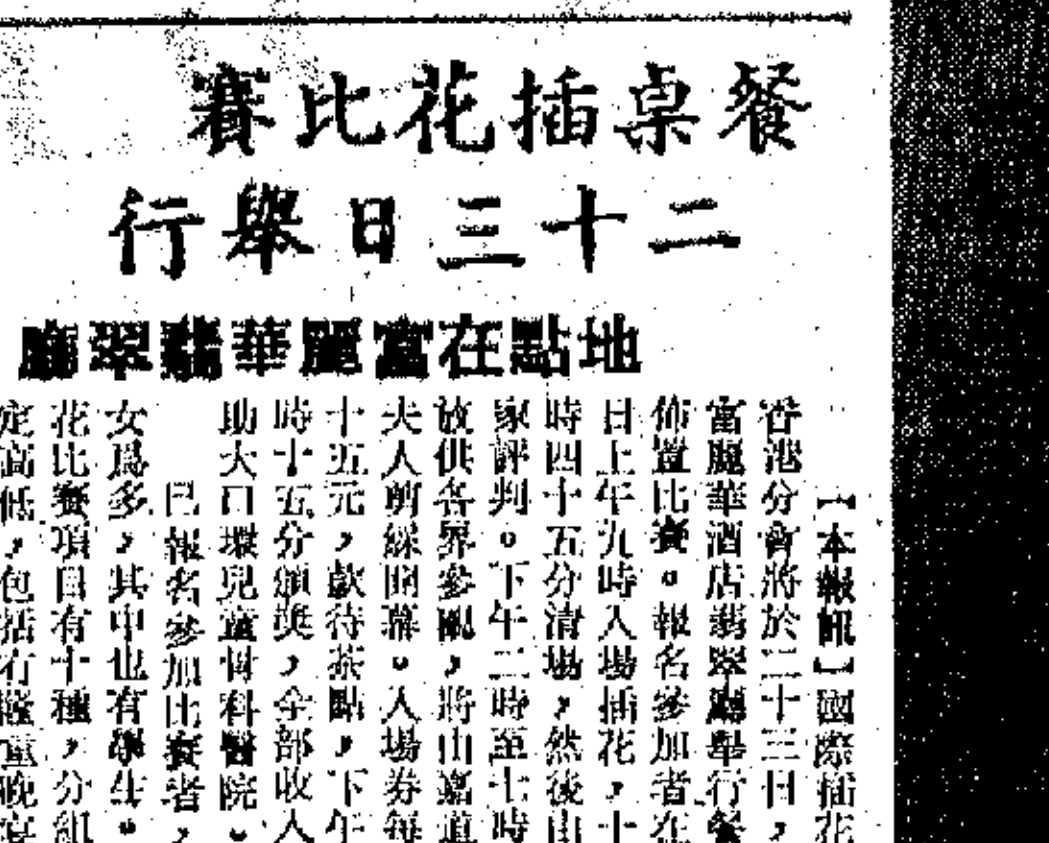 餐桌插花比賽
二十三日舉行
地點在富麗華翡翠廳
【本報訊】國際插花
香港分會將於二十三日，
富麗華酒店翡翠廳舉行餐
佈置比賽。報名參加者在
日上午九時入場插花，十
時四十五分清場，然後由
家評判。下午二時至七時
放供各界參觀，將由嘉道
夫人剪綵開幕。入場券每
十五元，款待茶點，下午
時十五分頒獎，全部收入
助大口環兒童骨科醫院。
已報名參加比賽者，
女爲多，其中也有學生。
花比賽項目有十種，分組
定高低，包括有隆重晚宴